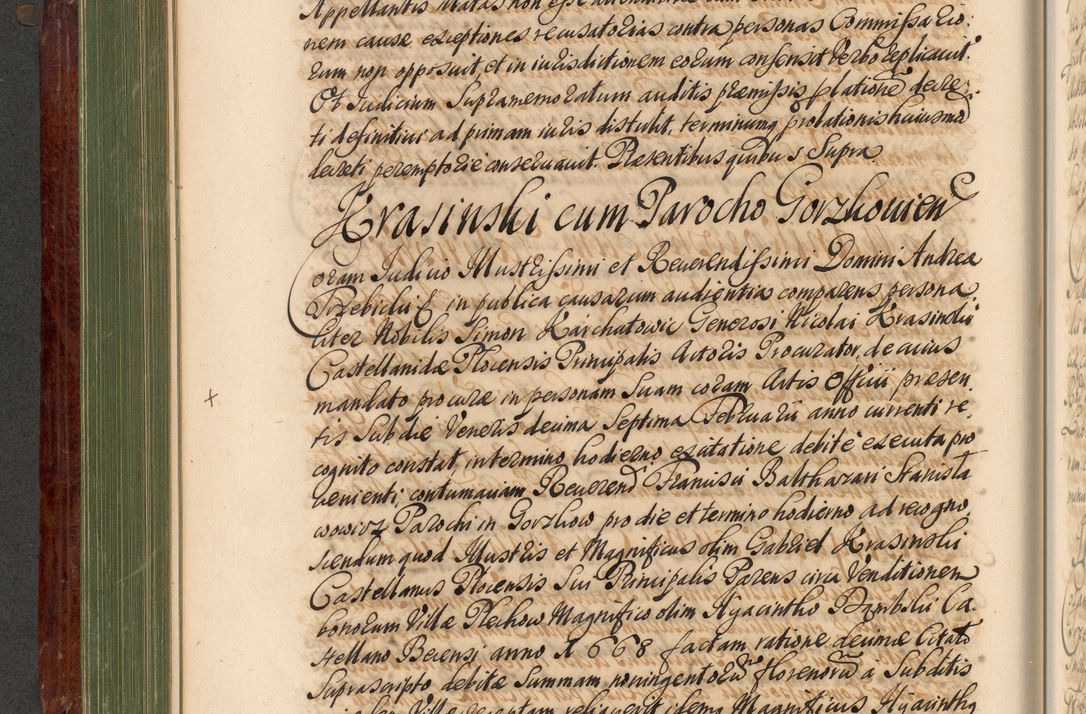 nem cause exceptiones recusatorias contra personas Commissario:
rum non opposuit, et in iurisditionem eorum consensit Verbo replicauit.
Et Iudicium Supramemoratum auditis præmissis platione decre:
ti definitiui ad primam iuris distulit, terminumq prolationis huiusmo
decreti peremptorie conseruauit. Præsentibus quibus Supra
Krasinski cum Parocho Gorzkouien
Coram Iudicio Illustrissimi et Reuerendissimi Domini Andrea
Trzebicki & in publica causarum audientia comparens persona,
liter Nobilis Simon Karchatowic Generosi Nicolai Krasinski
Castellanidæ Plocensis Principalis Actoris Procurator, de cuius
mandato procuræ in personam Suam coram Actis Officii præsen
tis Sub die Veneris decima Septima Februarii anno currenti re,
cognito constat, in termino hodierno ex citatione debitè executa pro
uenienti contumaciam Reuerend Francisci Balthazari Stanisła
wowicz Parochi in Gorzkow pro die et termino hodierno ad recogno,
scendum quod Illustris et Magnificus olim Gabriel Krasinski
Castellanus Plocensis Sui Principalis Parens circa Venditionem
bonorum Villæ Plechow Magnifico olim Hyacintho Dembski Ca,
stellano Becensi anno 1668 factam ratione decimæ Citato
Suprascripto debitæ Summam noningentorū florenorū a Subditis